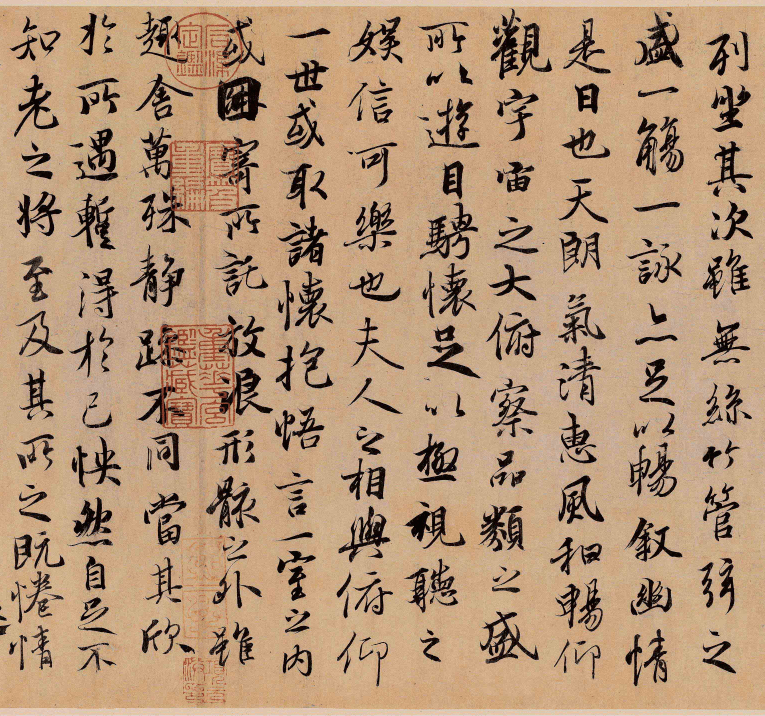 列坐其次雖無絲竹管弦之
盛一觴一詠亦足以暢叙幽情
是日也天朗氣清惠風和暢仰
觀宇宙之大俯察品類之盛
所以遊目騁懷足以極視聽之
娛信可樂也夫人之相與俯仰
一世或取諸懷抱悟言一室之內
或因寄所託放浪形骸之外雖
趣舍萬殊静躁不同當其欣
於所遇蹔得於己怏然自足不
知老之將至及其所之既惓情